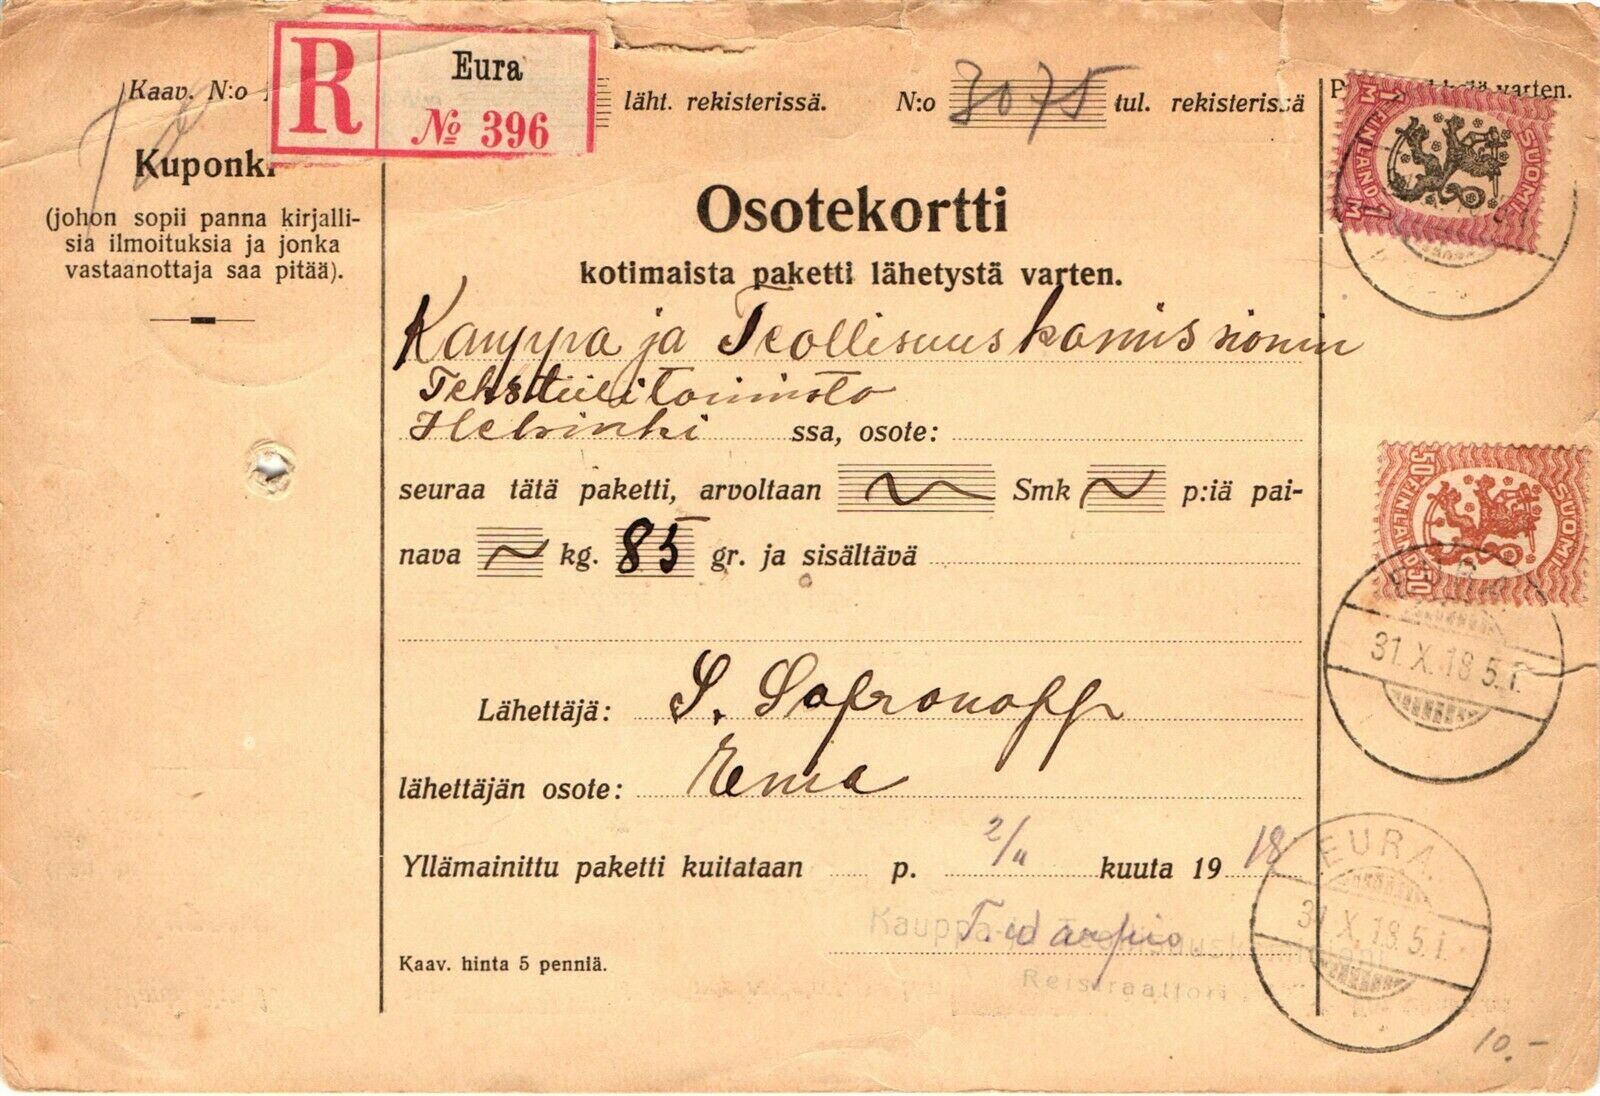 R Eura
№ 396
Kaav. N:o
läht. rekisterissä. N:o 3075 tul. rekisterissä
varten.
Kuponki
(johon sopii panna kirjalli-
sia ilmoituksia ja jonka
vastaanottaja saa pitää).
Osotekortti
kotimaista paketti lähetystä varten.
Kauppa ja Teollisuuskomissionin
Tekstiilitoimisto
Helsinki ssa, osote:
seuraa tätä paketti, arvoltaan Smk p:iä pai-
nava kg. 85 gr. ja sisältävä
Lähettäjä: S. Sofronoff
lähettäjän osote: Eura
Yllämainittu paketti kuitataan p. 2/11 kuuta 19 18
Kauppa-ja Teollisuuskomissioni
Kaav. hinta 5 penniä.
SUOMI FINLAND 1 M 1 M
SUOMI FINLAND 50 50
EURA
31.X.18 5.I.
EURA.
31.X.18.5.I.
10.-